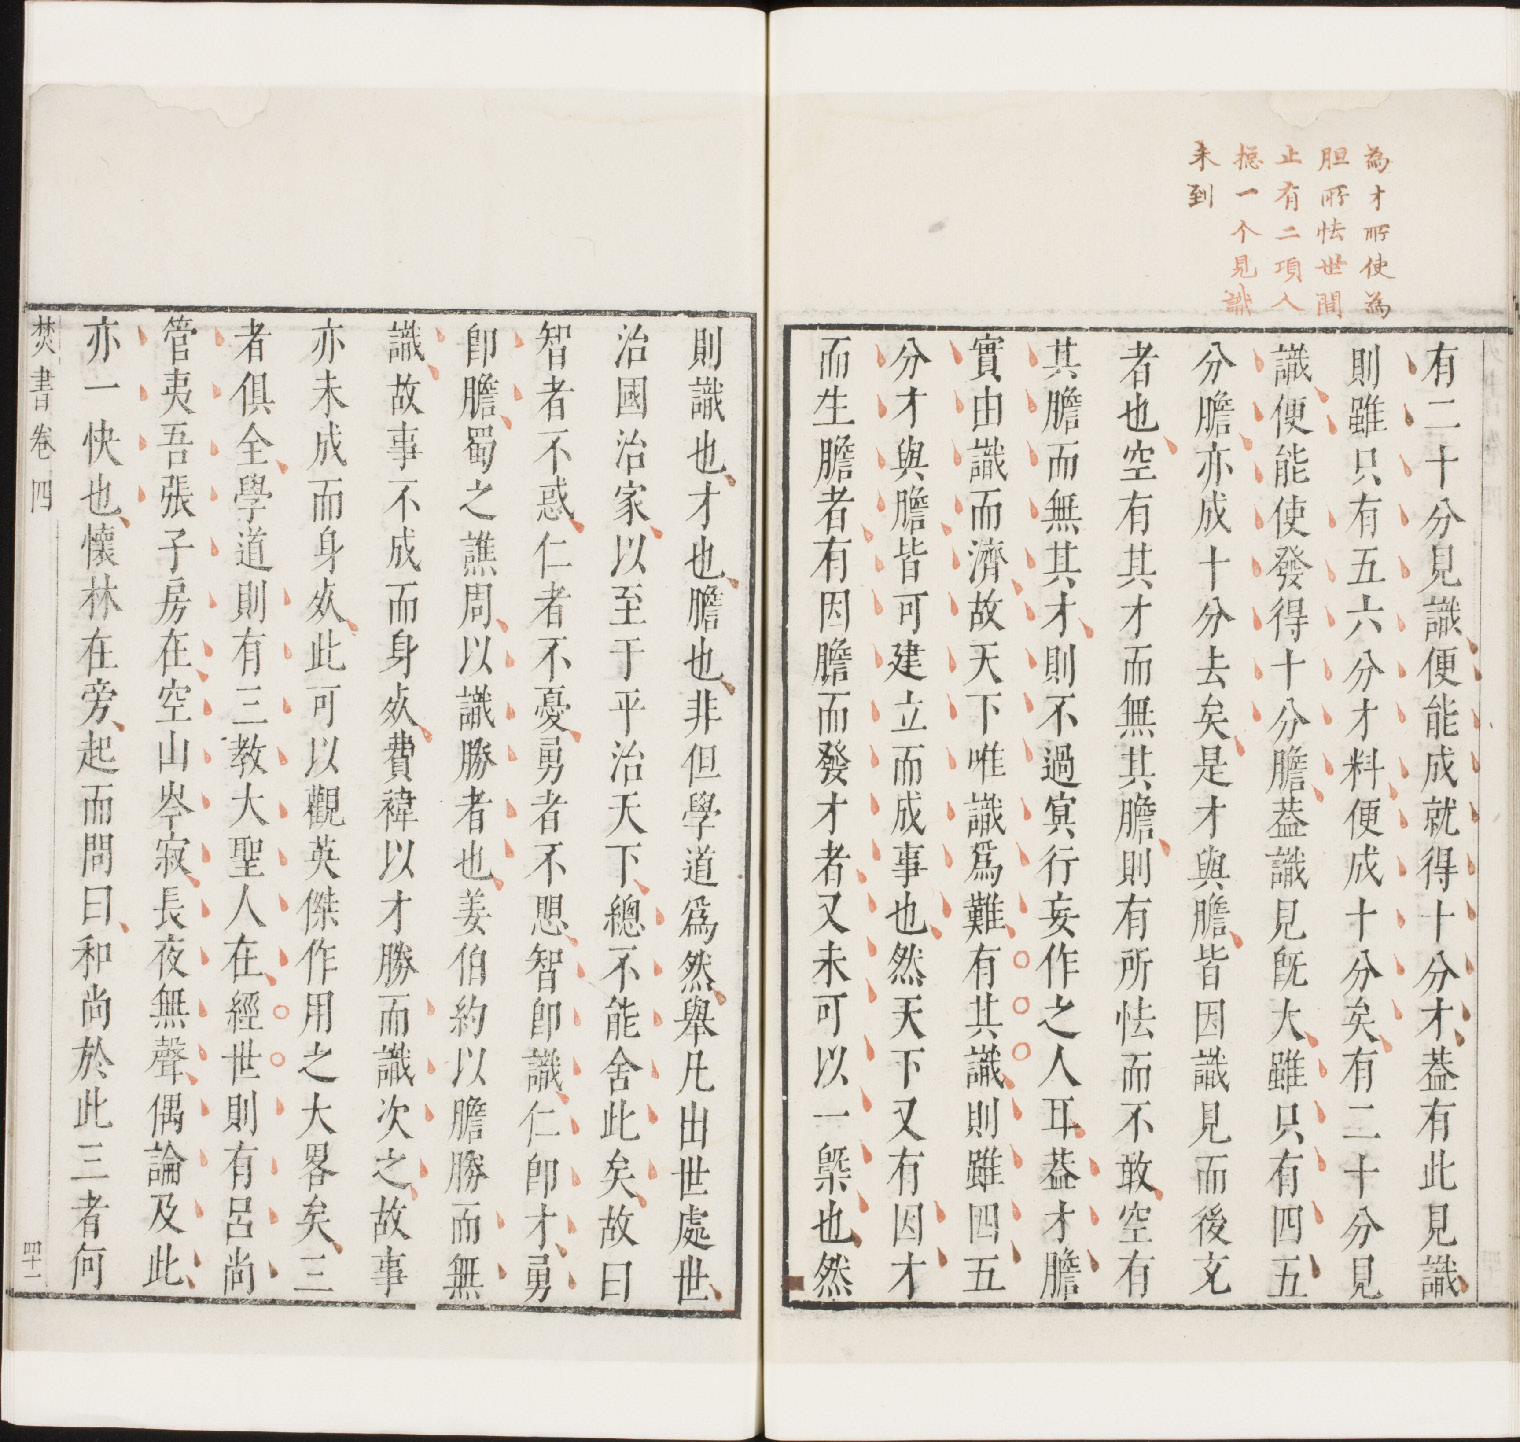 為才所使為
胆所怯世間
止有二項人
揔一个見識
未到
有二十分見識便能成就得十分才葢有此見識
則雖只有五六分才料便成十分矣有二十分見
識便能使發得十分膽葢識見旣大雖只有四五
分膽亦成十分去矣是才與膽皆因識見而後充
者也空有其才而無其膽則有所怯而不敢空有
其膽而無其才則不過冥行妄作之人耳葢才膽
實由識而濟故天下唯識爲難有其識則雖四五
分才與膽皆可建立而成事也然天下又有因才
而生膽者有因膽而發才者又未可以一槩也然
則識也才也膽也非但學道爲然舉凡出世處世
治國治家以至于平治天下總不能舍此矣故曰
智者不惑仁者不憂勇者不懼智卽識仁卽才勇
卽膽蜀之譙周以識勝者也姜伯約以膽勝而無
識故事不成而身死費禕以才勝而識次之故事
亦未成而身死此可以觀英傑作用之大畧矣三
者俱全學道則有三教大聖人在經世則有呂尚
管夷吾張子房在空山岑寂長夜無聲偶論及此
亦一快也懷林在旁起而問曰和尚於此三者何
焚書卷四
四十二